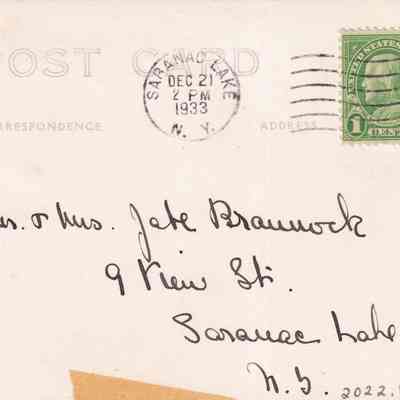 POST CARD
SARANAC LAKE
DEC 21
2 PM
1933
N. Y.
UNITED STATES
1
RRESPONDENCE
ADDRESS
rs. & Mrs. Jate Brannock
9 View St.
Saranac Lake
N. Y.
2022.